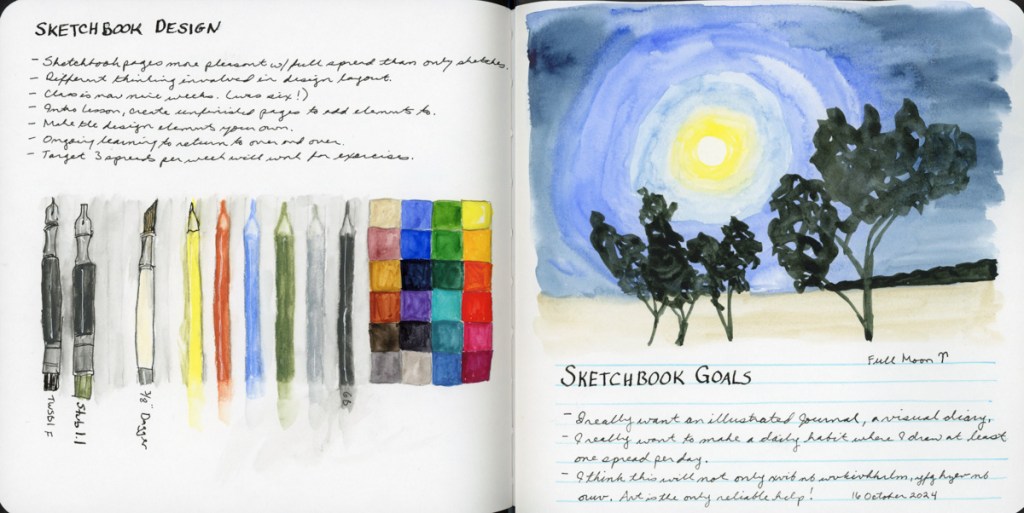 SKETCHBOOK DESIGN
- Sketchbook pages more pleasant w/ full spread than only sketches.
- Different thinking involved in design layout.
- Class is now nine weeks. (was six!)
- Intro lesson, create unfinished pages to add elements to.
- Make the design elements your own.
- Ongoing learning to return to over and over.
- Target 3 spreads per week will work for exercises.
TWSBI F
Stub 1.1
3/8" Dagger
6B
Full Moon ↑
SKETCHBOOK GOALS
- I really want an illustrated journal, a visual diary.
- I really want to make a daily habit where I draw at least
one spread per day.
- I think this will not only nb yfg nb
Art is the only reliable help! 16 October 2024